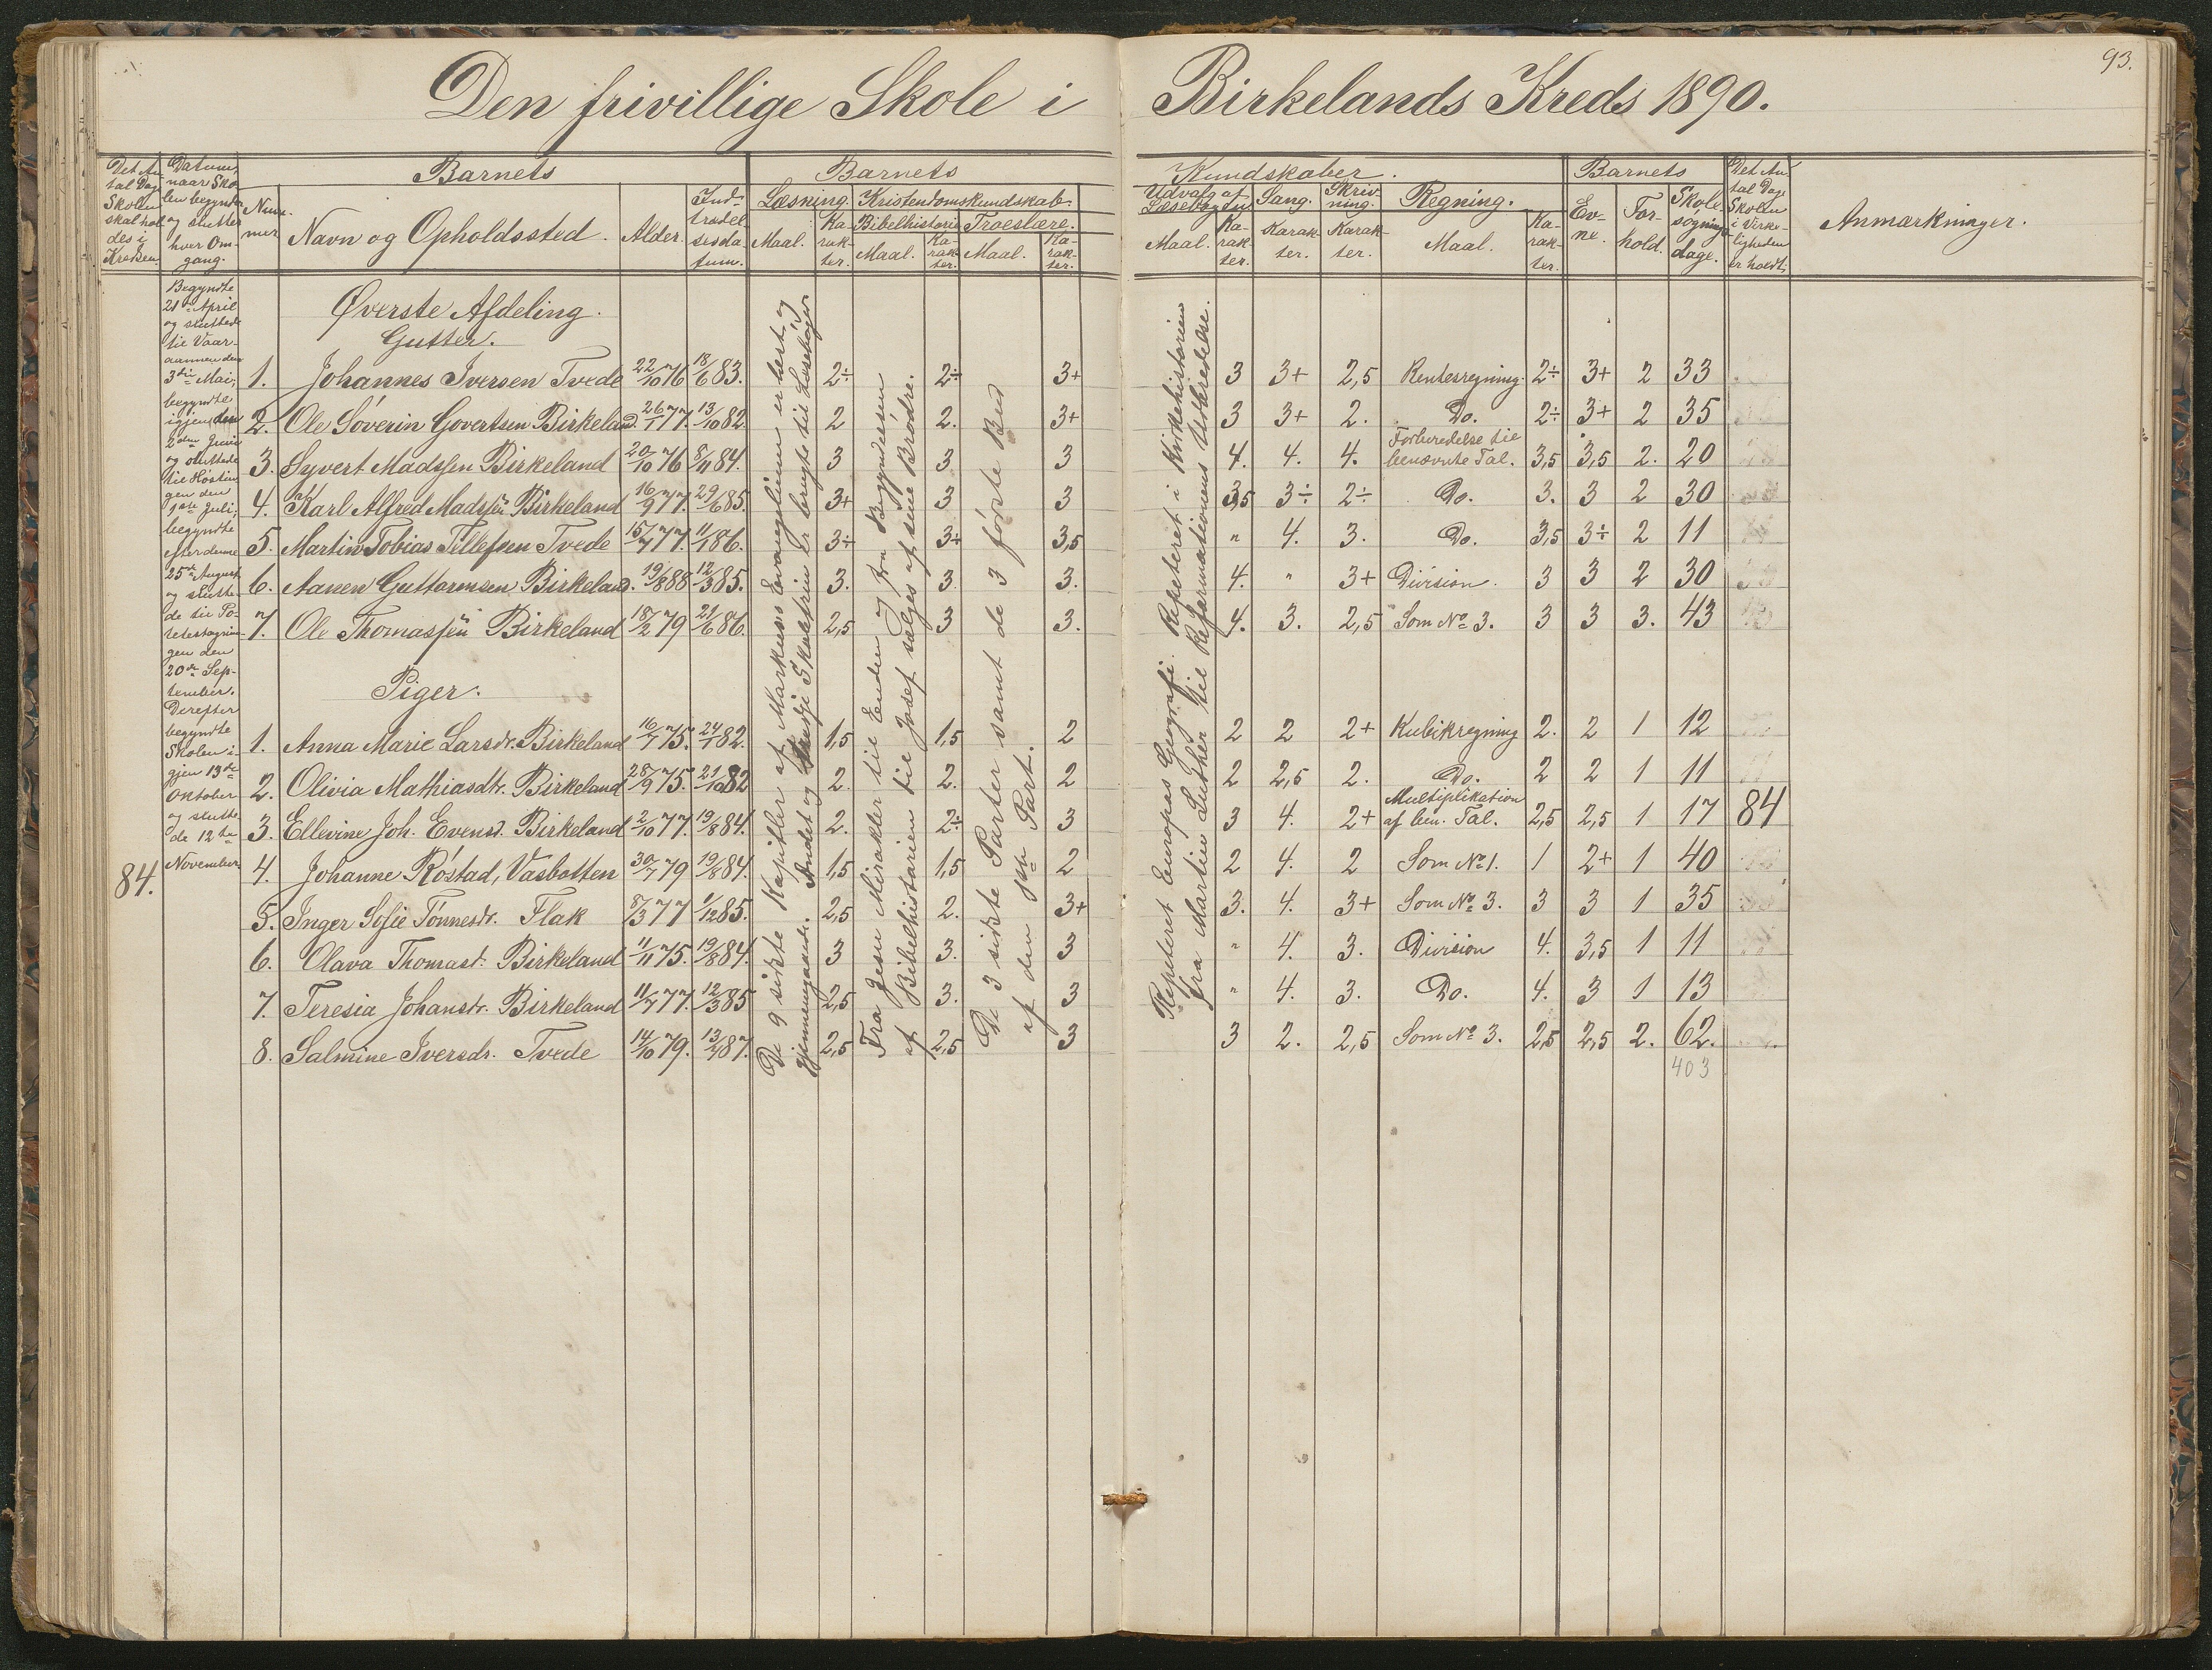 93.
Den frivillige Skole i Birkelands Kreds 1890.
Det An-
tal Dage
Skolen
skal hol-
des i
Kredsen.
Datum,
naar Sko-
len begynder
og slutter
hver Om-
gang.
Barnets
Num-
mer
Navn og Opholdssted.
Alder.
Ind-
trædel-
sesda-
tum.
Barnets
Kundskaber.
Læsning.
Maal.
Ka-
rak-
ter.
Kristendomskundskab.
Bibelhistorie
Maal.
Ka-
rak-
ter.
Troeslære.
Maal.
Ka-
rak-
ter.
Udvalg af
Læsebogen
Maal.
Ka-
rak-
ter.
Sang.
Karak-
ter.
Skriv-
ning.
Karak-
ter.
Regning.
Maal.
Ka-
rak-
ter.
Barnets
Ev-
ne.
For-
hold.
Skole-
søgnings-
dage.
Det An-
tal Dage
Skolen
i Virke-
ligheden
er holdt.
Anmærkninger.
84.
Begyndte
21de April
og sluttede
til Vaar-
aannen den
3die Mai;
begyndte
igjen den
2den Juni
og sluttede
til Høstin-
gen den
1ste Juli;
begyndte
efter denne
25de August
og slutte-
de til Po-
tetestagnin-
gen den
20de Sep-
tember.
Derefter
begyndte
Skolen i-
gjen 13de
Oktober
og slutte-
de 12te
November
De 9 sidste Kapitler af Markusus Evangelium er læst og
gjennemgaaede. Andet og Tredje Skoletrin er brugte til Læsebøger.
Fra Jesu Mirakler til Enden og fra Begyndelsen
af Bibelhistorien til Josef sælges af sine Brødre.
De 3 sidste Parter samt de 3 første Bud
af den 1ste Part.
Repeteret Europas Geografi. Repeteret i Kirkehistorien
fra Martin Luther til Reformationens Udbredelse.
Øverste Afdeling.
Gutter.
1. Johannes Iversen Tvede 22/10 76 18/6 83. 2÷ 2÷ 3+ 3 3+ 2,5 Rentesregning. 2÷ 3+ 2 33
2. Ole Søverin Govertsen Birkeland. 26/1 77. 13/10 82. 2 2. 3+ 3 3+ 2. Do. 2÷ 3+ 2 35
3. Syvert Madssen Birkeland 20/10 76 8/11 84. 3 3 3 4. 4. 4. Forberedelse til
benævnte Tal. 3,5 3,5 2. 20
4. Karl Alfred Madssen Birkeland 16/9 77. 29/6 85. 3+ 3 3 3,5 3÷ 2÷ Do. 3. 3 2 30
5. Martin Tobias Tellefsen Tvede 15/7 77. 11/1 86. 3÷ 3+ 3,5 " 4. 3. Do. 3,5 3÷ 2 11
6. Aanen Guttormsen Birkeland. 19/8 88 12/3 85. 3. 3. 3. 4. " 3+ Division. 3 3 2 30
7. Ole Thomassen Birkeland 18/2 79 21/6 86. 2,5 3 3. 4. 3. 2,5 Som No 3. 3 3 3. 43
Piger.
1. Anna Marie Larsdr. Birkeland 16/7 75. 24/1 82. 1,5 1,5 2 2 2 2+ Kubikregning 2. 2 1 12
2. Olivia Mathiasdtr. Birkeland 28/9 75. 21/10 82 2. 2. 2 2 2,5 2. Do. 2 2 1 11
3. Ellevine Joh. Evensd. Birkeland 2/10 77. 19/8 84. 2. 2÷ 3 3 4. 2+ Multiplikation
af ben. Tal. 2,5 2,5 1 17 84
4. Johanne Røstad, Vasbotten 30/7 79 19/8 84. 1,5 1,5 2 2 4. 2 Som No 1. 1 2+ 1 40
5. Inger Sofie Tønnesdr. Flak 8/3 77 1/12 85. 2,5 2. 3+ 3. 4. 3+ Som No 3. 3 3 1 35
6. Olava Thomasd. Birkeland 11/11 75. 19/8 84. 3 3. 3 " 4. 3. Division 4. 3,5 1 11
7. Teresia Johansdr. Birkeland 11/7 77. 12/3 85 2,5 3. 3 " 4. 3. Do. 4. 3 1 13
8. Salmine Iversdr. Tvede 14/10 79. 13/4 87. 2,5 2,5 3 3 2. 2,5 Som No 3. 2,5 2,5 2. 62.
403